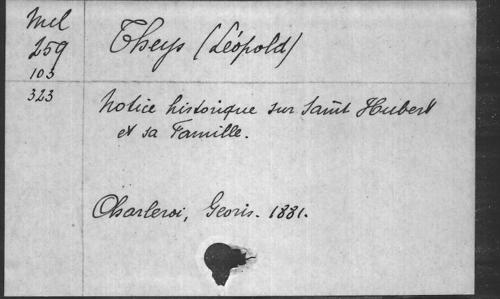 Mel
259
103
323
Theys (Léopold)
Notice historique sur Saint Hubert
et sa Famille.
Charleroi, Georis. 1881.